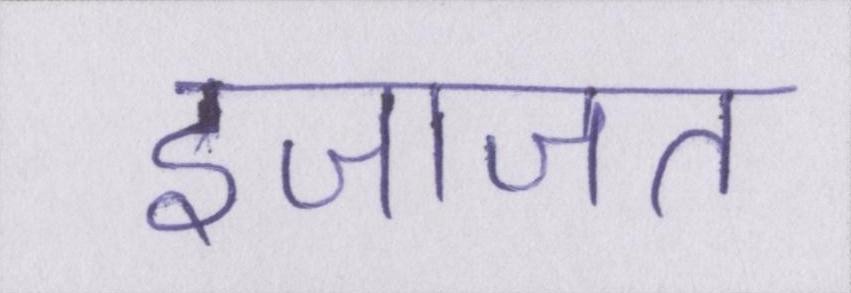 इजाजत